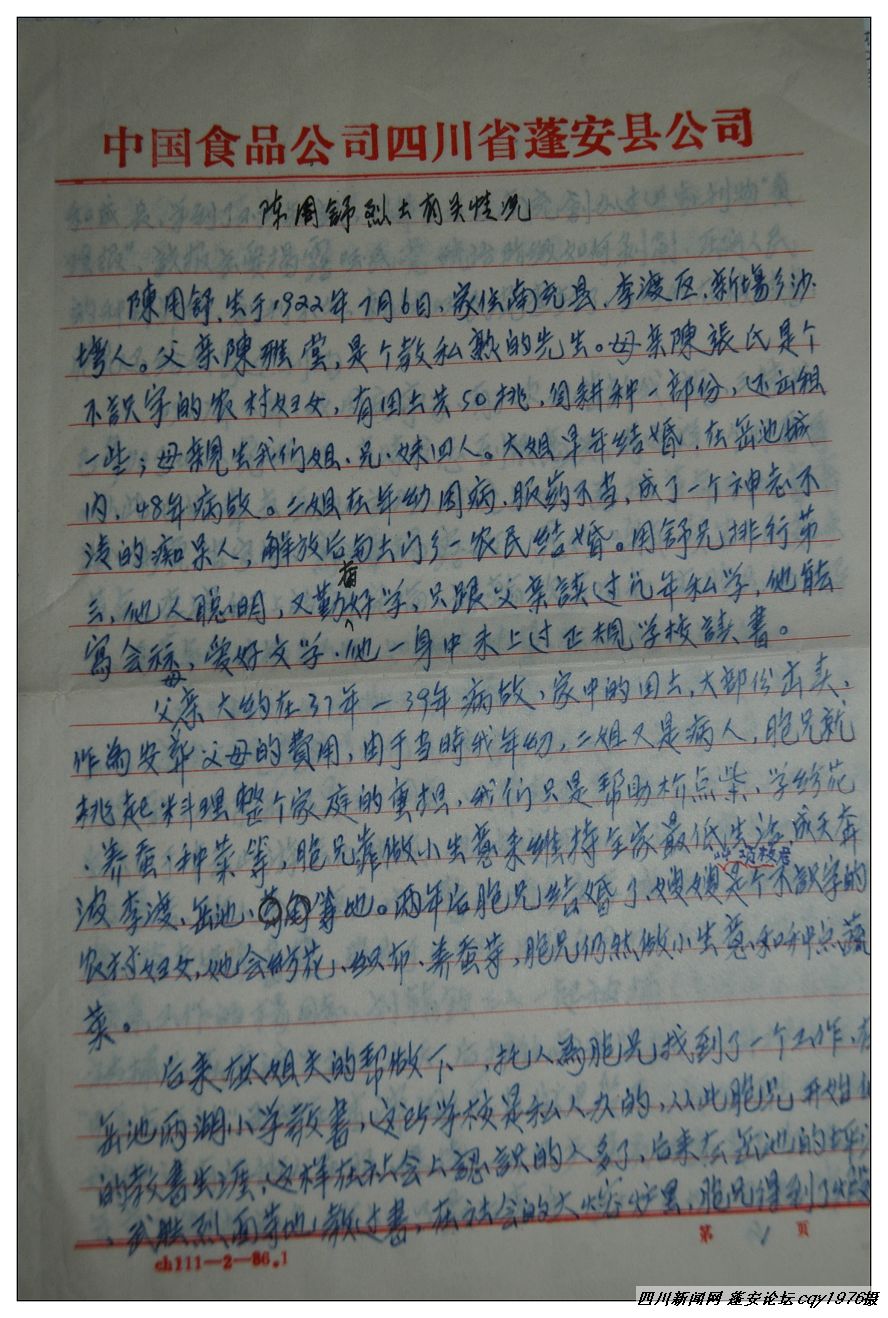 中国食品公司四川省蓬安县公司
陈用舒烈士有关情况
陳用舒,生于1922年7月6日,家住南充县,李渡区,新場乡沙
塆人。父亲陳雅堂,是个教私熟的先生。母亲陳張氏是个
不識字的农村妇女,有田土共50挑,自耕种一部份,还出租
一些;母親生我们姐、兄、妹四人。大姐早年结婚,在岳池城
内,48年病故。二姐在年幼因病,服药不当,成了一个神志不
清的痴呆人,解放后与土门乡一农民结婚。用舒兄排行第
三,他人聪明,又勤奋好学,只跟父亲读过几年私学,他能
寫会算,爱好文学,他一身中未上过正规学校讀書。
父母亲大约在37年—39年病故,家中的田土,大部份出卖、
作為安葬父母的費用,由于当時我年幼,二姐又是病人,胞兄就
挑起料理整个家庭的重担,我们只是帮助检点柴,学纺花
、养蚕、种菜等,胞兄靠做小生意来维持全家最低生活,成天奔
波李渡、岳池、等地。两年后胞兄结婚了,嫂嫂是个不識字的
农村妇女,她会纺花、织布、养蚕等,胞兄仍然做小生意和种点蔬
菜。
后来在大姐夫的帮做下,托人為胞兄找到了一个工作,在
岳池两湖小学教書,这所学校是私人办的,从此胞兄开始他
的教書生涯,这样在社会上認識的人多了,后来在岳池的坪滩
、武胜烈面等地教过書,在社会的大熔炉里,胞兄得到了鍛
ch111—2—86.1
第 1 页
四川新闻网 蓬安论坛 cqy1976摄